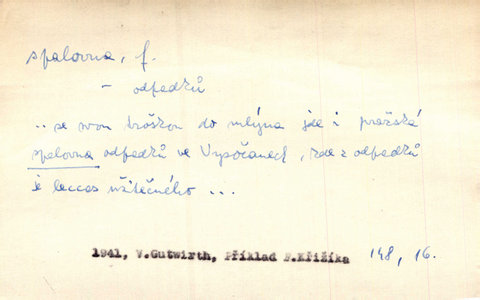 spalovna, f.
– odpadků
.. se svou troškou do mlýna jde i pražská
spalovna odpadků ve Vysočanech, kde z odpadků
je leccos užitečného ...
1941, V.Gutwirth, Příklad F.Křižíka 148, 16.